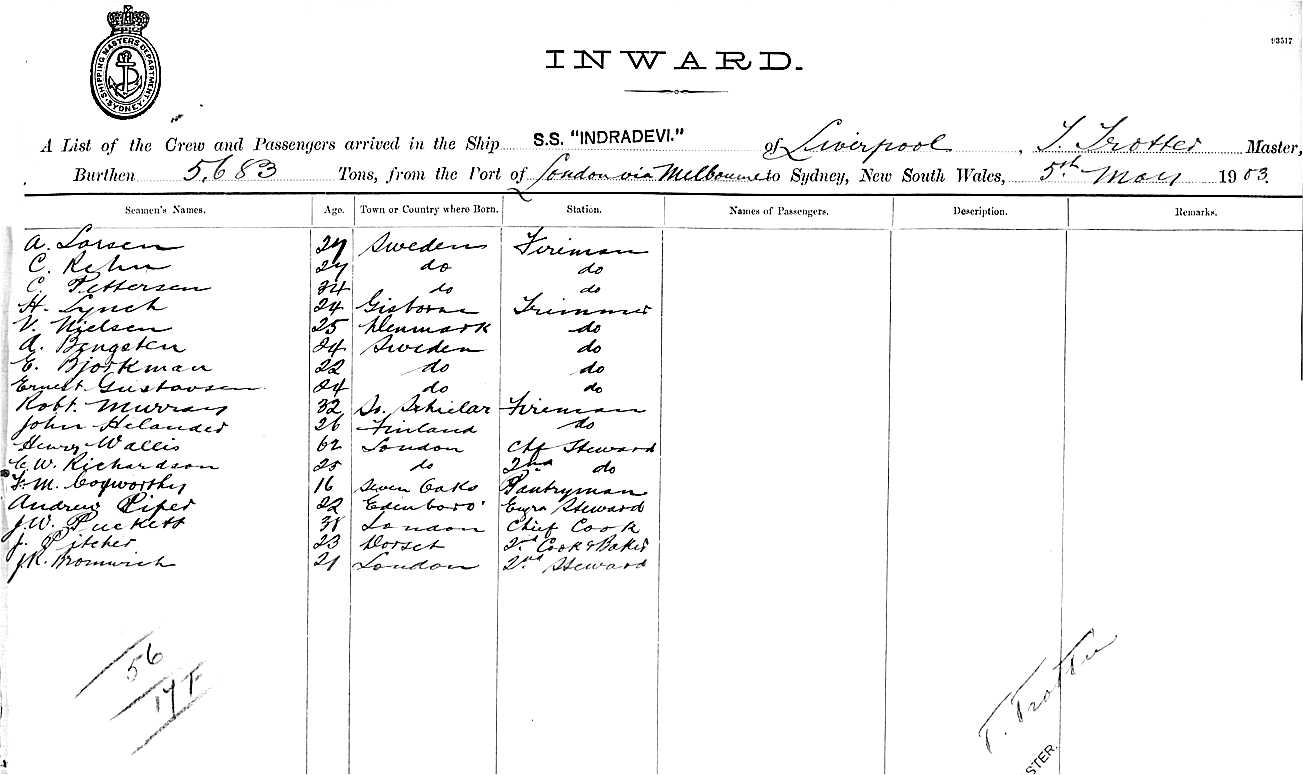 SHIPPING MASTERS DEPARTMENT
SYDNEY
93517
INWARD.
A List of the Crew and Passengers arrived in the Ship S.S. "INDRADEVI." of Liverpool, T. Trotter Master,
Burthen 5,683 Tons, from the Port of London via Melbourne to Sydney, New South Wales, 5th May 1903.
Seamen's Names. Age. Town or Country where Born. Station. Names of Passengers. Description. Remarks.
A. Larsen 27 Sweden Fireman
C. Rehn 27 do do
C. Pettersen 34 do do
H. Lynch 24 Gisborne Trimmer
V. Nielsen 25 Denmark do
A. Bengsten 24 Sweden do
E. Bjorkman 22 do do
Ernest Gustavsen 24 do do
Robt. Murray 32 So. Fireman
John Helander 26 Finland do
Henry Wallis 62 London Chf Steward
E. W. Richardson 25 do 2nd do
F. M. Cogworthy 16 Seven Oaks Pantryman
Andrew Piper 22 Edenboro' Steward
J. W. Puckett 38 London Chief Cook
J. Pitcher 23 Dorset 2nd Cook & Baker
J. R. Bromwich 21 London 2nd Steward
56
17 F
T. Trotter
STER.